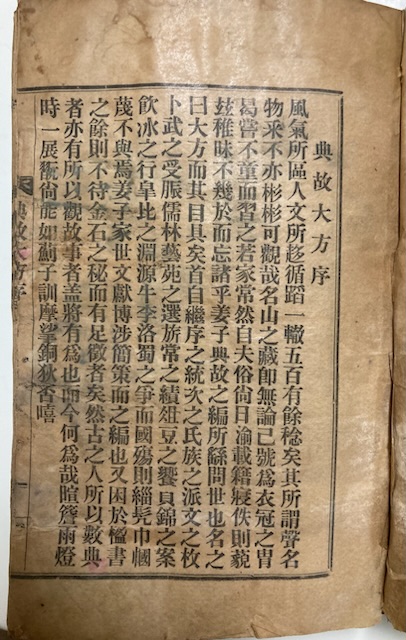 典故大方序
風氣所區人文所趍循蹈一轍五百有餘稔矣其所謂聲名
物采不亦彬彬可觀哉名山之藏卽無論已號爲衣冠之胄
曷嘗不童而習之若家常然自夫俗尙日渝載籍寢佚則藐
玆稚昧不幾於而忘諸乎姜子典故之編所繇問世也名之
曰大方而其目具矣首自繼序之統次之氏族之派文之枚
卜武之受脤儒林藝苑之選旂常之績俎豆之饗貝錦之案
飮冰之行皐比之淵源牛李洛蜀之爭而國殤則緇髡巾幗
蔑不與焉姜子家世文獻博涉簡策而之編也又困於儘書
之餘則不待金石之秘而有足徵者矣然古之人所以數典
者亦有所以觀故事者盖將有爲也而今何爲哉暄簷雨燈
時一展翫尙能如薊子訓摩挲銅狄否嘻
典故大方序
一